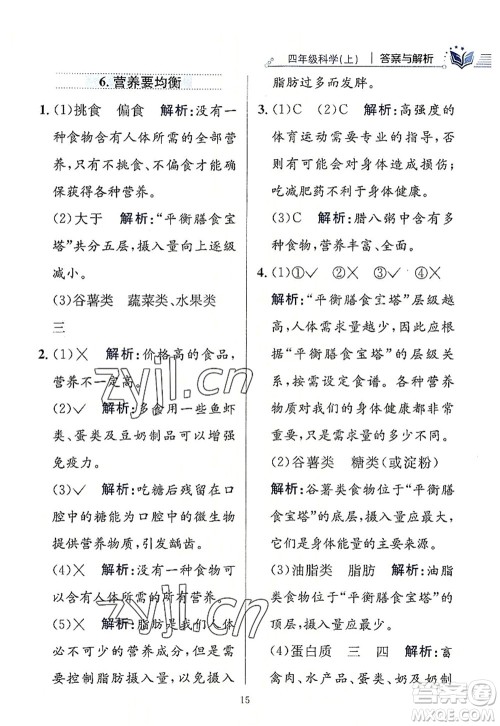 四年级科学(上) 答案与解析
6. 营养要均衡
1. (1)挑食　偏食　解析:没有一
种食物含有人体所需的全部营
养,只有不挑食、不偏食才能获
得各种营养。
(2)大于　解析:“平衡膳食宝
塔”共分五层,摄入量向上逐级
减少。
(3)谷薯类　蔬菜类、水果类
三
2. (1)✕　解析:价格高的食品,
营养不一定高。
(2)✓　解析:多食用一些鱼虾
类、蛋类及豆奶制品可以增强
免疫力。
(3)✓　解析:吃糖后残留在口
腔中的糖能为口腔中的微生物
提供营养物质,引发龋齿。
(4)✕　解析:没有一种食物可
以提供人体所需的所有营养。
(5)✕　解析:脂肪是人体必不
可少的营养成分,可以少摄入
一些脂肪,但如果不摄入或摄入
脂肪过少,会影响身体健康。
3. (1)C　解析:高强度的
体育运动需要专业的指导,否
则可能会对身体造成损伤。
吃减肥药不利于身体健康。
(2)C　解析:腊八粥中有
多种食物,营养丰富。
4. (1)①✓　②✓　③✓　④✕
解析:“平衡膳食宝塔”的层级越
高,人体需求量越少,但需求量
少,不代表对人体不重要。我们
应根据“平衡膳食宝塔”的层级关
系,按需设定食谱。各种营养
物质对我们的身体健康都是十
分重要的,缺一不可。
(2)谷薯类　糖类(或淀粉)
解析:谷薯类食物位于“平衡膳
食宝塔”的底层,摄入量应最多。
它们是身体能量的主要来源。
(3)油脂类　脂肪　解析:油脂
类食物位于“平衡膳食宝塔”的
顶层,摄入量应最少。
(4)蛋白质　三　四　解析:畜
禽肉、水产品、蛋类、奶及奶制
15
zyjl.cn
zyjl.cn
答案圈
MXQE.COM